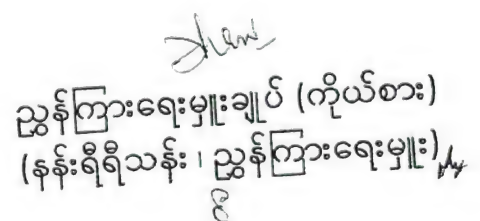 ညွှန်ကြားရေးမှူးချုပ် (ကိုယ်စား)
(နန်းရီရီသန်း ၊ ညွှန်ကြားရေးမှူး)